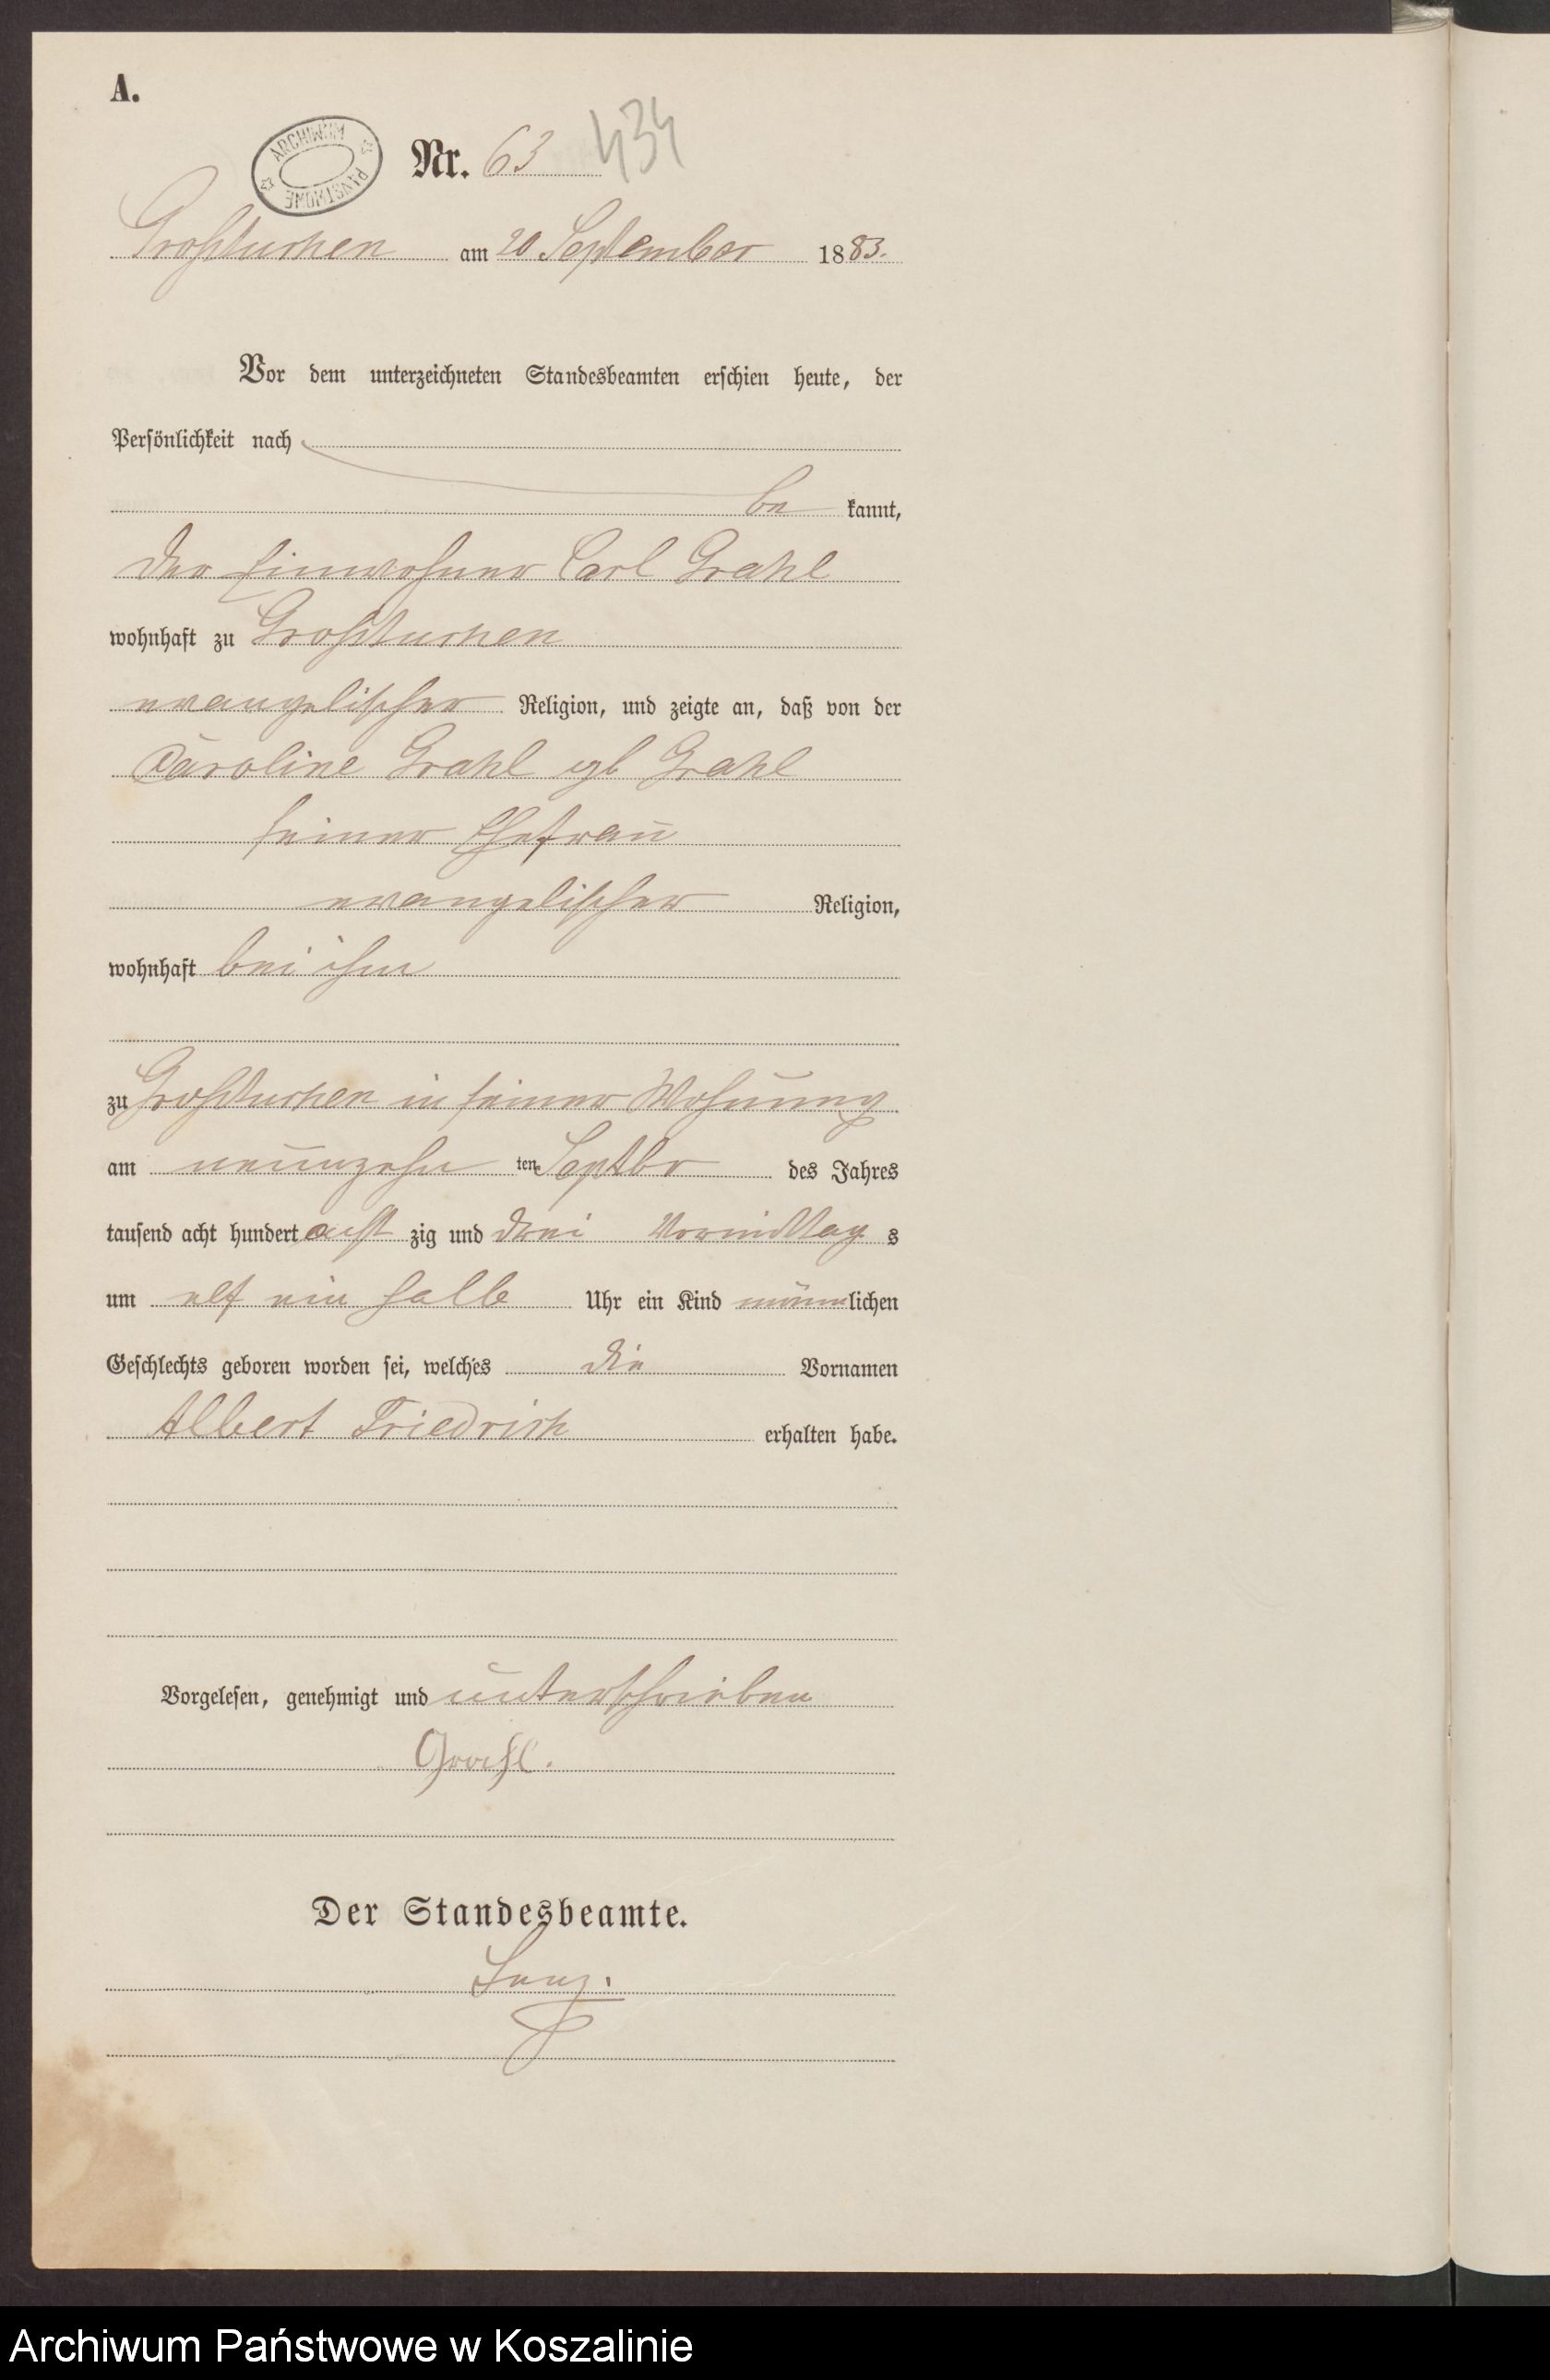 A.
ARCHIWUM PAŃSTWOWE
Nr. 63 434
Großtuchen am 20 September 1883.
Vor dem unterzeichneten Standesbeamten erschien heute, der
Persönlichkeit nach
be kannt,
der Einwohner Carl Grahl
wohnhaft zu Großtuchen
evangelischer Religion, und zeigte an, daß von der
Caroline Grahl gb Grahl
seiner Ehefrau
evangelischer Religion,
wohnhaft bei ihm
zu Großtuchen in seiner Wohnung
am neunzehn ten Septbr des Jahres
tausend acht hundert acht zig und drei Vormittag s
um elf ein halb Uhr ein Kind männlichen
Geschlechts geboren worden sei, welches die Vornamen
Albert Friedrich erhalten habe.
Vorgelesen, genehmigt und unterschrieben
Grahl.
Der Standesbeamte.
Archiwum Państwowe w Koszalinie